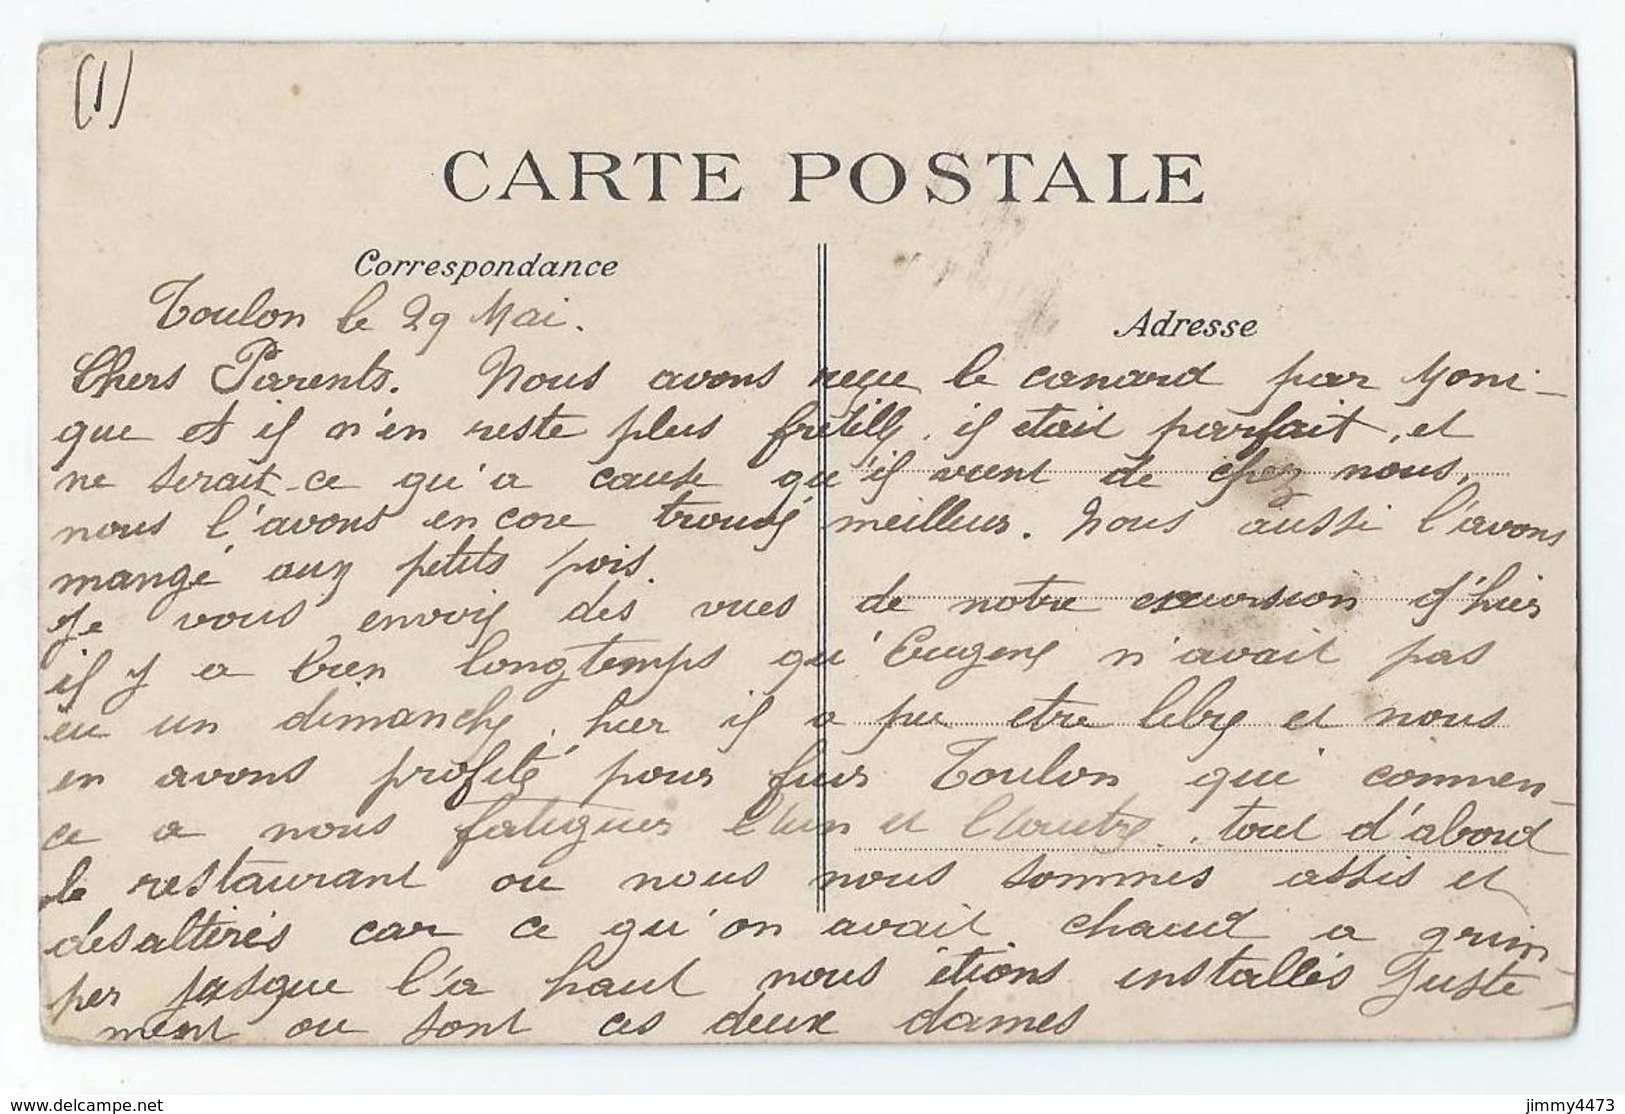 (1)
CARTE POSTALE
Correspondance
Adresse
Toulon le 29 Mai.
Chers Parents. Nous avons reçu le canard par Moni-
que et il n'en reste plus frétille, il etait parfait, et
ne serait-ce qu'a cause qu'il vient de chez nous,
nous l'avons encore trouvé meilleur. Nous aussi l'avons
mangé aux petits pois.
Je vous envoie des vues de notre excursion d'hier
il y a bien longtemps qu'Eugene n'avait pas
eu un dimanche, hier il a pu etre libre et nous
en avons profité pour fuir Toulon qui commen-
ce a nous fatiguer l'un et l'autre, tout d'abord
le restaurant ou nous nous sommes assis et
desaltérés car ce qu'on avait chaud a grim-
per jusque l'a haut nous étions installés juste-
ment ou sont ces deux dames
www.delcampe.net
jimmy4473